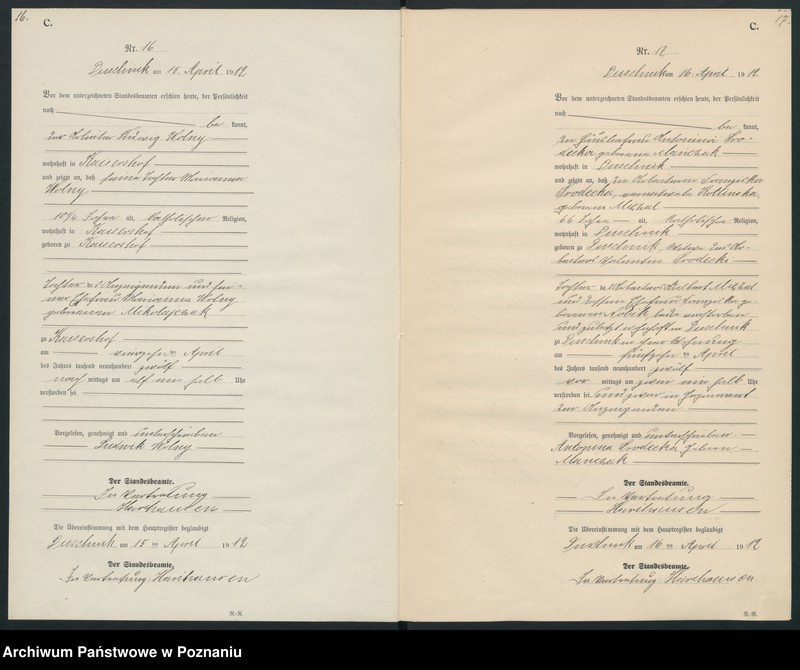 16.
C.
Nr. 16
Duschnik am 15. April 1912
Vor dem unterzeichneten Standesbeamten erschien heute, der Persönlichkeit
nach
be kannt,
der Arbeiter Ludwig Wolny
wohnhaft in Kaisershof
und zeigte an, daß seine Tochter Marianna
Wolny
10 3/4 Jahre alt, katholischer Religion,
wohnhaft in Kaisershof
geboren zu Kaisershof
Tochter des Anzeigenden und sei-
ner Ehefrau Marianna Wolny
geborenen Mikolajczak
zu Kaisershof
am vierzehnten April
des Jahres tausend neunhundert zwölf
nach mittags um elf ein halb Uhr
verstorben sei.
Vorgelesen, genehmigt und unterschrieben
Ludwik Wolny
Der Standesbeamte.
In Vertretung
Die Übereinstimmung mit dem Hauptregister beglaubigt
Duschnik am 15 ten April 1912
Der Standesbeamte.
In Vertretung
R.-R.
17.
C.
Nr. 17
Duschnik am 16. April 1912
Vor dem unterzeichneten Standesbeamten erschien heute, der Persönlichkeit
nach
be kannt,
die Häuslerfrau Antonina Sro-
decka geborene Manczak
wohnhaft in Duschnik
und zeigte an, daß die Arbeiterin Franziska
Srodecka,
geborene Michal
66 Jahre alt, katholischer Religion,
wohnhaft in Duschnik
geboren zu Duschnik, Witwe des Ar-
beiters Valentin Srodecki
Tochter des Arbeiters Michal
und dessen Ehefrau Franziska ge-
borenen beide verstorben
und zuletzt wohnhaft in Duschnik
zu Duschnik in ihrer Wohnung
am fünfzehnten April
des Jahres tausend neunhundert zwölf
vor mittags um zwei ein halb Uhr
verstorben sei und zwar in Gegenwart
der Anzeigenden
Vorgelesen, genehmigt und unterschrieben
Antonina Srodecka geboren
Manczak
Der Standesbeamte.
In Vertretung
Die Übereinstimmung mit dem Hauptregister beglaubigt
Duschnik am 16 ten April 1912
Der Standesbeamte.
In Vertretung
R.-R.
Archiwum Państwowe w Poznaniu